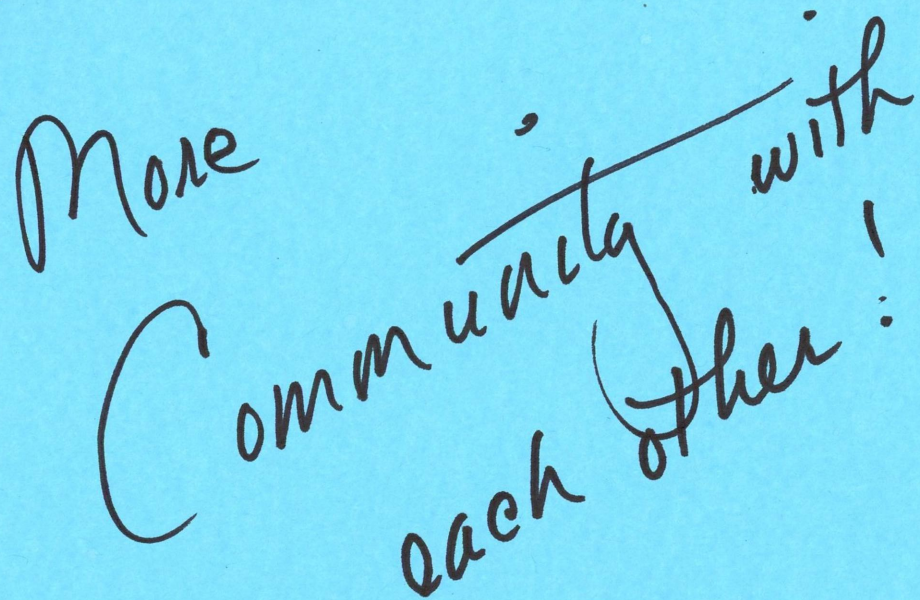 More
Community with
each other!